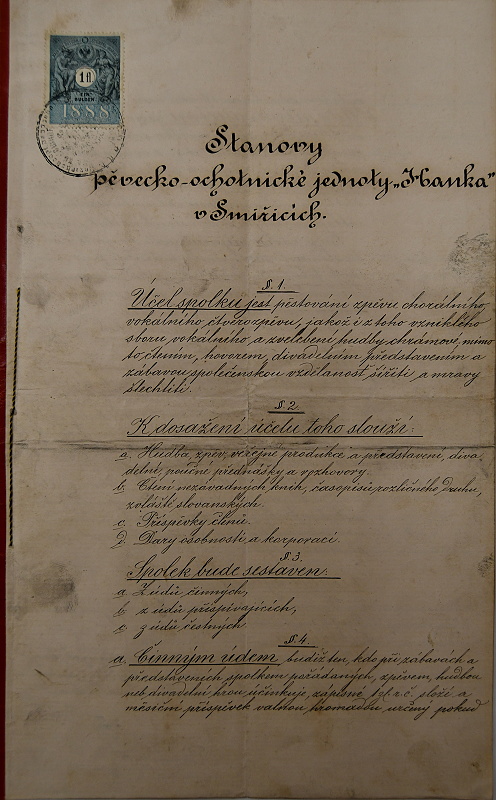 1 fl
EIN
GULDEN
1888
Stanovy
pěvecko-ochotnické jednoty „Hanka"
v Smiřicích.
§. 1.
Účel spolku jest pěstování zpěvu chorálního,
vokálního čtverozpěvu, jakož i z toho vzniklého
sboru vokálního, a zvelebení hudby chrámové, mimo
to, čtením, hovorem, divadelním představením a
zábavou společenskou vzdělanost šířiti, a mravy
šlechtiti.
§. 2.
K dosažení účelu toho slouží:
a, Hudba, zpěv, veřejné produkce a představení, diva-
delní, poučné přednášky a rozhovory.
b, Čtení nezávadných knih, časopisů rozličného druhu,
zvláště slovanských.
c, Příspěvky členů.
d, Dary osobností a korporací.
§. 3.
Spolek bude sestaven:
a, Z údů činných,
b, z údů přispívajících,
c, z údů čestných.
§. 4.
a, Činným údem budiž ten, kdo při zábavách a
představeních spolkem pořádaných, zpěvem, hudbou
neb divadelní hrou účinkuje, zápisné 1 zl. r. č. složí a
měsíční příspěvek valnou hromadou určený pokud